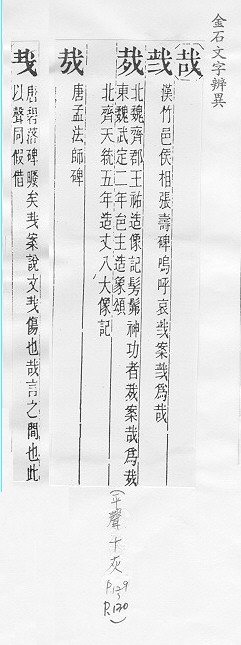 金石文字辨異
哉
㢤
漢竹邑侯相張壽碑嗚呼哀㢤案㢤為哉
烖
北魏齊郡王祐造像記髣髴神功者烖案哉為烖
東魏武定二年邑主造象頌
北齊天統五年造丈八大像記
唐孟法師碑
唐碧落碑曖矣𢦏案說文𢦏傷也哉言之間也此
以聲同假借
(平聲十灰
P.129
P.130)